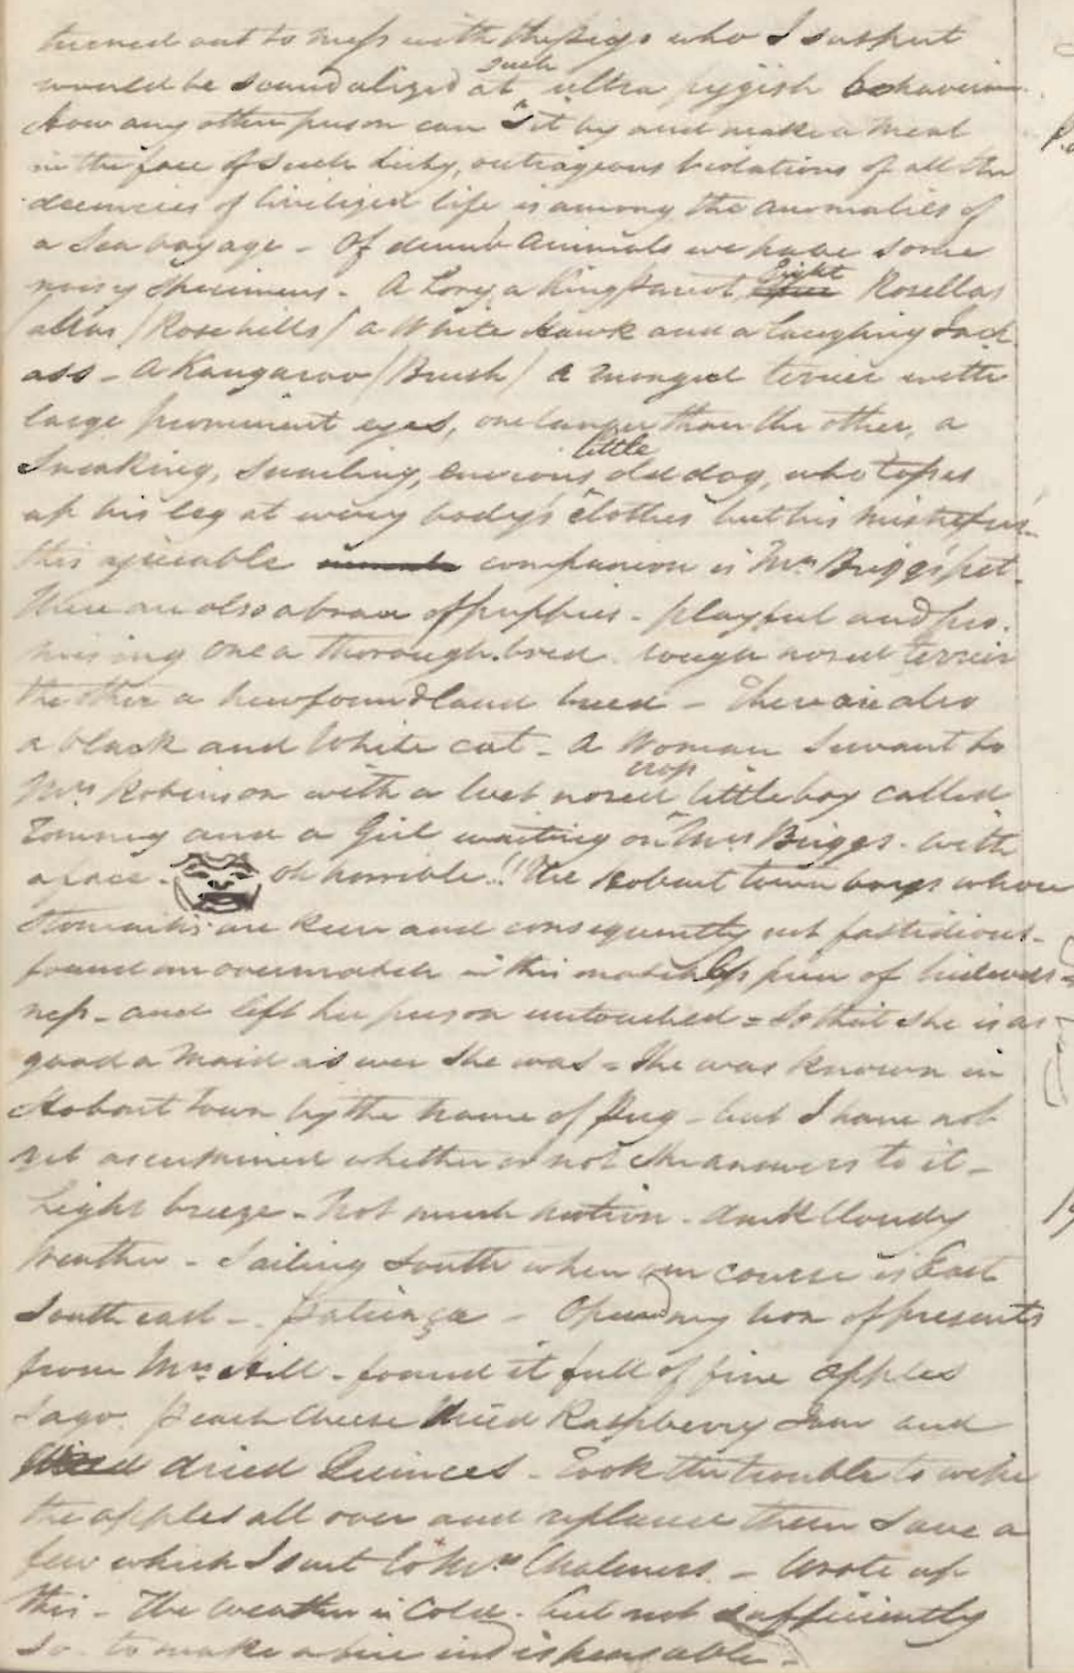 turned out to mess with the pigs who I suspect
would be scandalized at such ultra pygish behaviour.
How any other person can sit by and make a meal
in the face of such dirty, outrageous violations of all the
decencies of civilized life is among the anomalies of
a Sea voyage - Of dumb animals we have some
noisy specimens. A Lory, a King Parrot, Eight Rosellas
alias / Rose hills / a White Hawk and a laughing Jack
ass - a Kangaroo / Brush / a mongrel terrier with
large prominent eyes, one larger than the other, a
sneaking, snarling, envious little old dog, who
up his leg at every body's clothes but his mistress's
this agreeable companion is Mrs Briggs' pet.
There are also a brace of puppies - playful and pro-
mising one a thorough-bred rough nosed terrier
the other a newfoundland breed - There are also
a black and White cat - A Woman Servant to
Mrs Robinson with a nosed little boy called
Tommy and a Girl waiting on Mrs Briggs - with
a face - oh horrible!! The Hobart town boys whose
stomachs are keen and consequently not fastidious -
found an overmatch in this matchless piece of hideous-
ness - and left her person untouched = So that she is as
good a Maid as ever she was = She was known in
Hobart Town by the name of Pug - but I have not
yet ascertained whether or not she answers to it -
Light breeze - Not much motion - dark Cloudy
Weather - Sailing South when our course is East
South east - - Opened my box of presents
from Mrs Hill - found it full of fine apples
Sago Peach Cheese Raspberry Jam and
dried Quinces - Took the trouble to wipe
the apples all over and replaced them save a
few which I sent to Mrs Chalmers - Wrote up
this - The weather is Cold - but not sufficiently
so to make a fire indispensable -